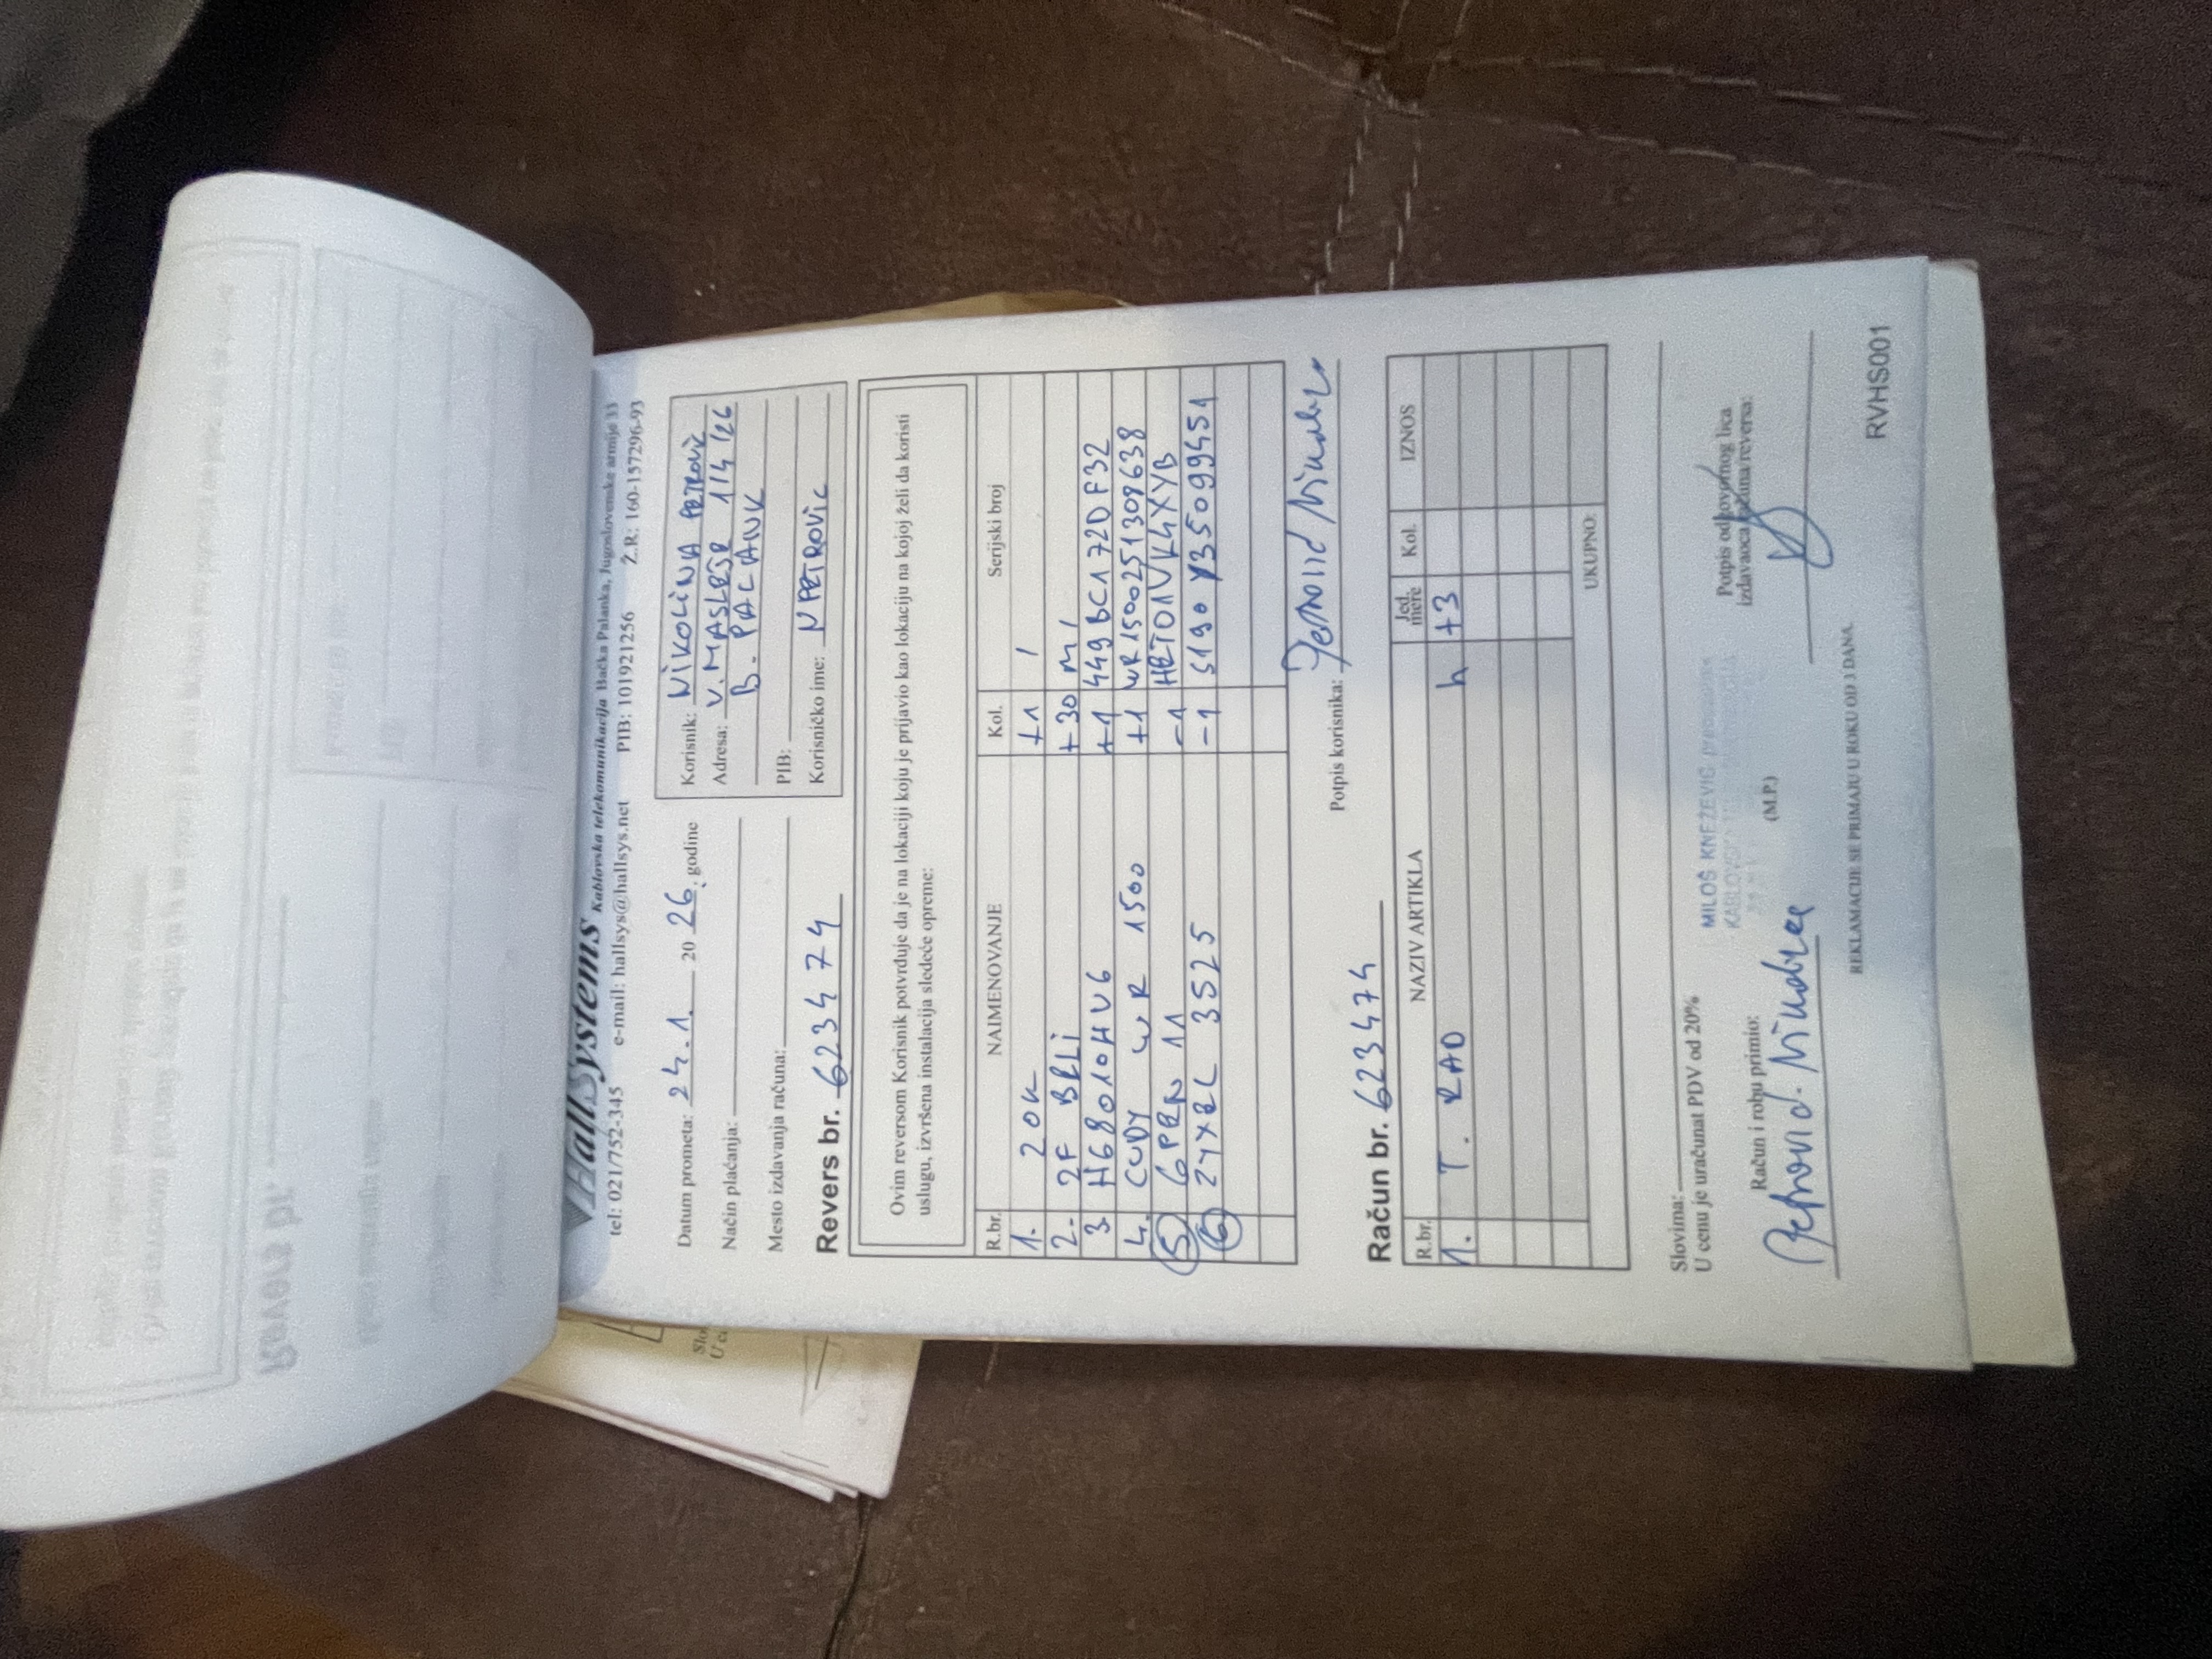 HallSystems Kablovska telekomunikacija Bačka Palanka, Jugoslovenske armije 33
tel: 021/752-345 e-mail: hallsys@hallsys.net PIB: 101921256 Ž.R: 160-157296-93
Datum prometa: 24.1. 20 26. godine
Način plaćanja:
Mesto izdavanja računa:
Korisnik: NIKOLINA PETROVIĆ
Adresa: V. MASLEŠE 114/26
B. PALANK
PIB:
Korisničko ime: NPETROVIC
Revers br. 623474
Ovim reversom Korisnik potvrđuje da je na lokaciji koju je prijavio kao lokaciju na kojoj želi da koristi
uslugu, izvršena instalacija sledeće opreme:
R.br. NAIMENOVANJE Kol. Serijski broj
1. ZOK +1 /
2. 2F BELI +30 m /
3. H68010HV6 +1 449BC172DF32
4. CUDY WR 1500 +1 WR1500251309638
5 GPEN 11 -1 HETO1VK4XYB
6 ZYXEL 3525 -1 S190Y35099451
Potpis korisnika: Petrović Nikolina
Račun br. 623474
R.br. NAZIV ARTIKLA Jed. mere Kol. IZNOS
1. T. RAD h +3
UKUPNO:
Slovima:
U cenu je uračunat PDV od 20%
Račun i robu primio:
Petrović Nikolina
MILOŠ KNEŽEVIĆ
(M.P.)
Potpis odgovornog lica
izdavaoca računa/reversa:
REKLAMACIJE SE PRIMAJU U ROKU OD 3 DANA
RVHS001
Revers br.